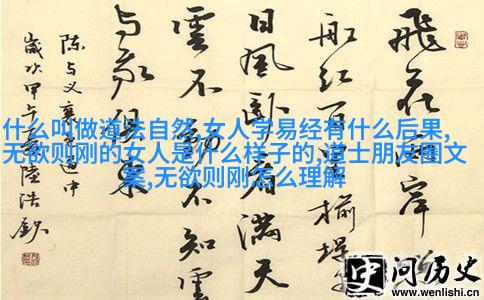 飛花兩岸
船紅百里榆堤
日風卧看滿天
雲不動不知雲
与我俱東
陈与义襄邑道中
歲次甲午
什么叫做道法自然,女人学易经有什么后果,
无欲则刚的女人是什么样子的,道士朋友圈文
案,无欲则刚怎么理解
问历史
www.wenlishi.cn